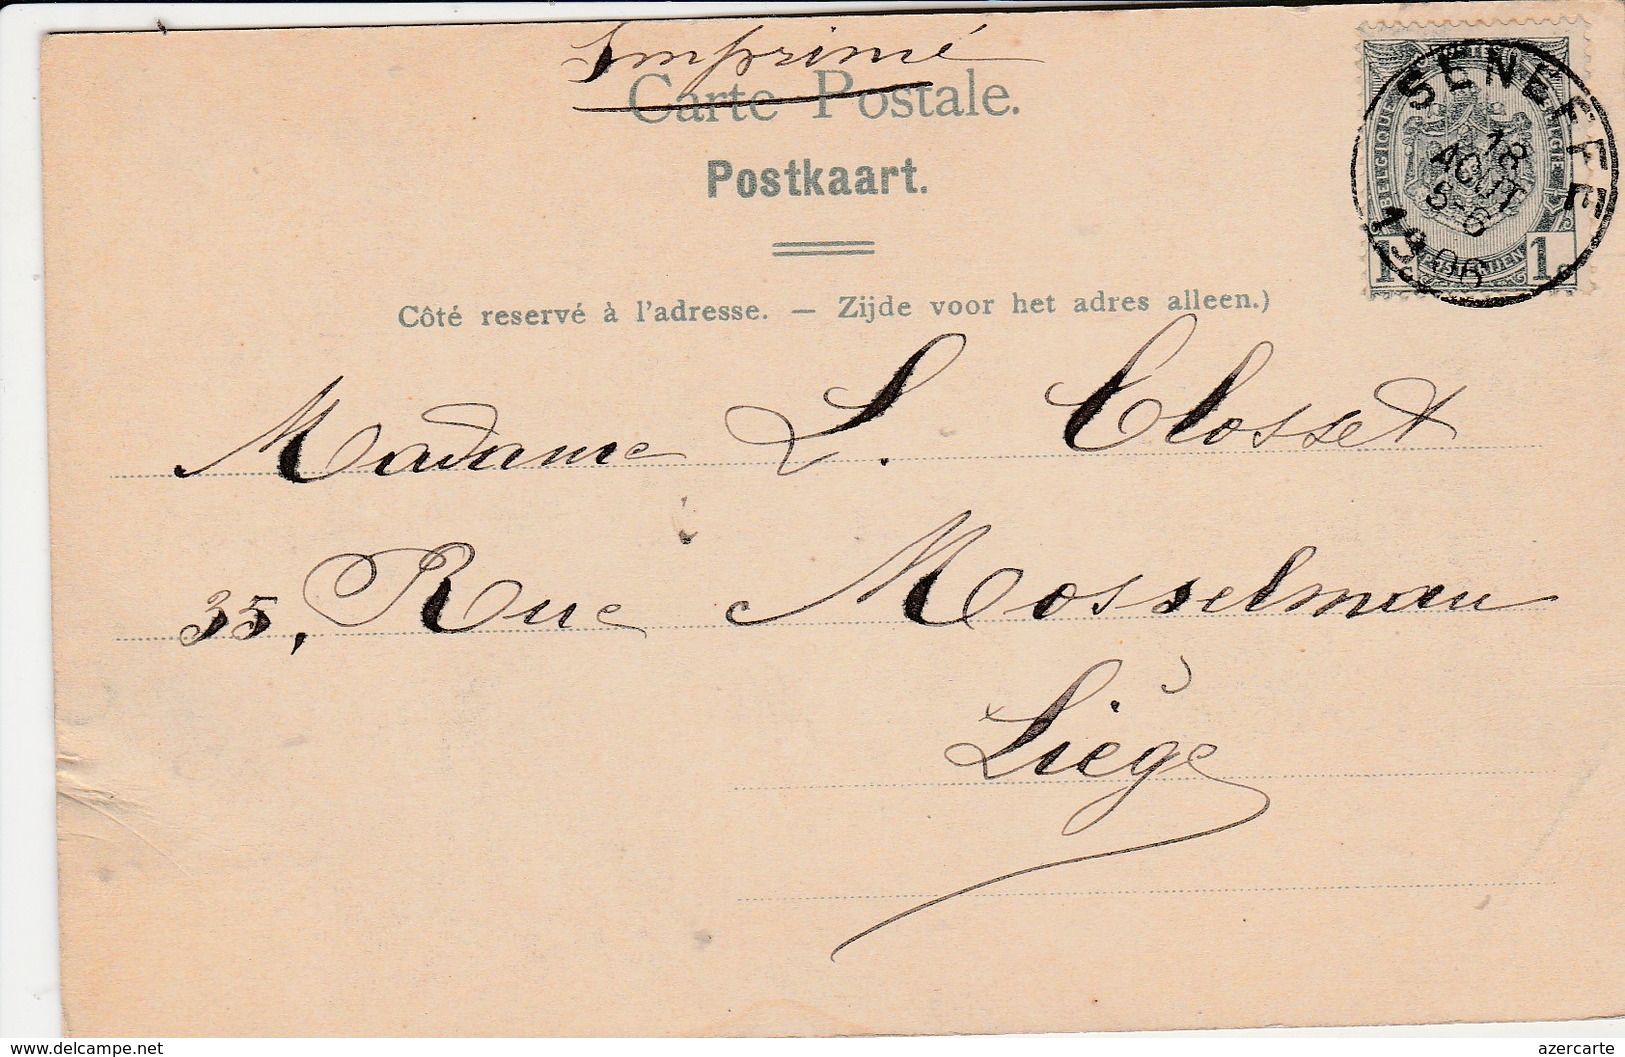 Imprimé
Carte Postale.
Postkaart.
Côté reservé à l'adresse. — Zijde voor het adres alleen.)
SENEFFE
18
AOUT
5-6
1906
BELGIQUE
BELGIE
1c 1c
Madame L. Closset
35, Rue Mosselman
Liège
www.delcampe.net
azercarte